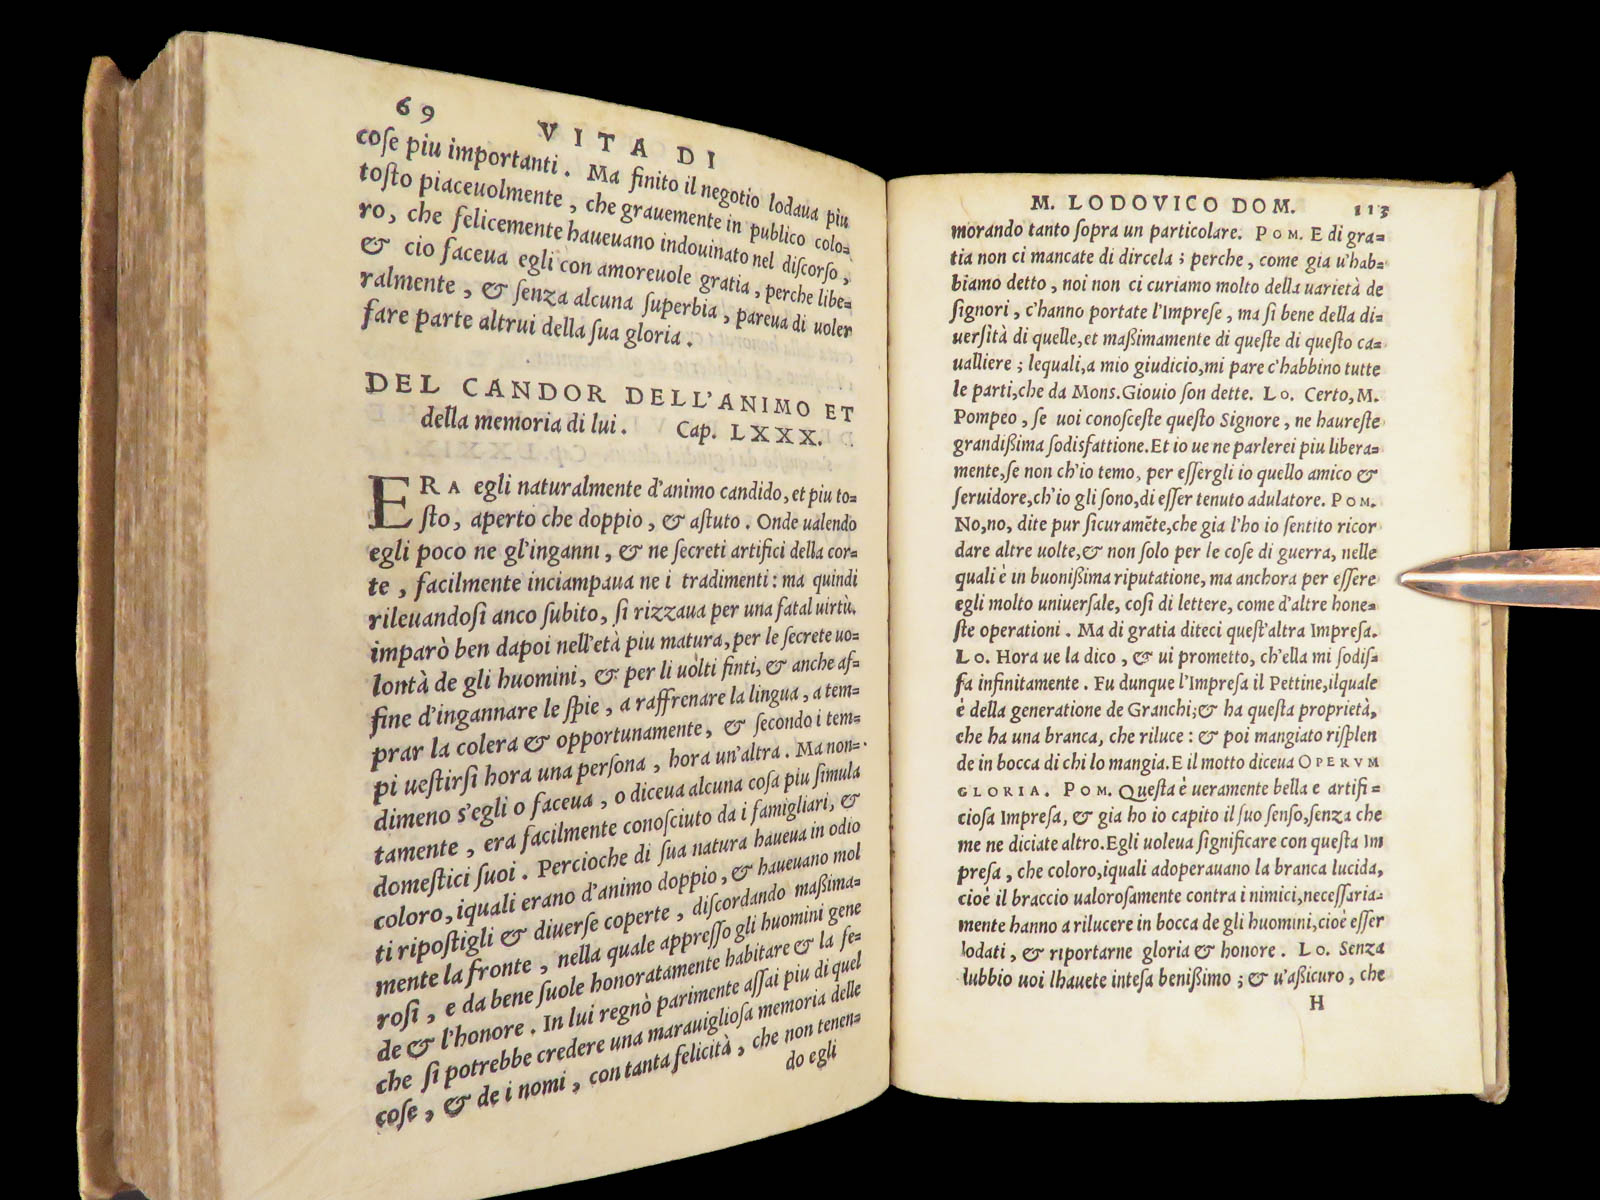 69
VITA DI
coſe piu importanti. Ma finito il negotio lodaua piu
toſto piaceuolmente, che grauemente in publico colo=
ro, che felicemente haueuano indouinato nel diſcorſo,
& cio faceua egli con amoreuole gratia, perche libe=
ralmente, & ſenza alcuna ſuperbia, pareua di uoler
fare parte altrui della ſua gloria.
DEL CANDOR DELL'ANIMO ET
della memoria di lui. Cap. LXXX.
ERA egli naturalmente d'animo candido, et piu to-
ſto, aperto che doppio, & aſtuto. Onde ualendo
egli poco ne gl'inganni, & ne ſecreti artifici della cor-
te, facilmente inciampaua ne i tradimenti: ma quindi
rileuandoſi anco ſubito, ſi rizzaua per una fatal uirtù.
imparò ben dapoi nell'età piu matura, per le ſecrete uo-
lontà de gli huomini, & per li uolti finti, & anche af-
fine d'ingannare le ſpie, a raffrenare la lingua, a tem-
prar la colera & opportunamente, & ſecondo i tem=
pi ueſtirſi hora una perſona, hora un'altra. Ma non=
dimeno s'egli o faceua, o diceua alcuna coſa piu ſimula
tamente, era facilmente conoſciuto da i famigliari, &
domeſtici ſuoi. Percioche di ſua natura haueua in odio
coloro, iquali erano d'animo doppio, & haueuano mol
ti ripoſtigli & diuerſe coperte, diſcordando maßima=
mente la fronte, nella quale appreſſo gli huomini gene
roſi, e da bene ſuole honoratamente habitare & la fe-
de & l'honore. In lui regnò parimente aſſai piu di quel
che ſi potrebbe credere una marauiglioſa memoria delle
coſe, & de i nomi, con tanta felicità, che non tenen=
do egli
M. LODOVICO DOM. 113
morando tanto ſopra un particolare. POM. E di gra=
tia non ci mancate di dircela; perche, come gia u'hab=
biamo detto, noi non ci curiamo molto della uarietà de
ſignori, c'hanno portate l'Impreſe, ma ſi bene della di=
uerſità di quelle, et maßimamente di queſte di queſto ca=
ualliere; lequali, a mio giudicio, mi pare c'habbino tutte
le parti, che da Mons. Giouio ſon dette. LO. Certo, M.
Pompeo, ſe uoi conoſceſte queſto Signore, ne haureſte
grandißima ſodisfattione. Et io ue ne parlerei piu libera=
mente, ſe non ch'io temo, per eſſergli io quello amico &
ſeruidore, ch'io gli ſono, di eſſer tenuto adulatore. POM.
No, no, dite pur ſicuramẽte, che gia l'ho io ſentito ricor
dare altre uolte, & non ſolo per le coſe di guerra, nelle
quali è in buonißima riputatione, ma anchora per eſſere
egli molto uniuerſale, coſi di lettere, come d'altre hone=
ſte operationi. Ma di gratia diteci queſt'altra Impreſa.
LO. Hora ue la dico, & ui prometto, ch'ella mi ſodiſ=
fa infinitamente. Fu dunque l'Impreſa il Pettine, ilquale
è della generatione de Granchi; & ha queſta proprietà,
che ha una branca, che riluce: & poi mangiato riſplen
de in bocca di chi lo mangia. E il motto diceua OPERVM
GLORIA. POM. Queſta è ueramente bella e artifi=
cioſa Impreſa, & gia ho io capito il ſuo ſenſo, ſenza che
me ne diciate altro. Egli uoleua ſignificare con queſta Im
preſa, che coloro, iquali adoperauano la branca lucida,
cioè il braccio ualoroſamente contra i nimici, neceſſaria=
mente hanno a rilucere in bocca de gli huomini, cioè eſſer
lodati, & riportarne gloria & honore. LO. Senza
dubbio uoi lhauete inteſa benißimo; & u'aßicuro, che
H